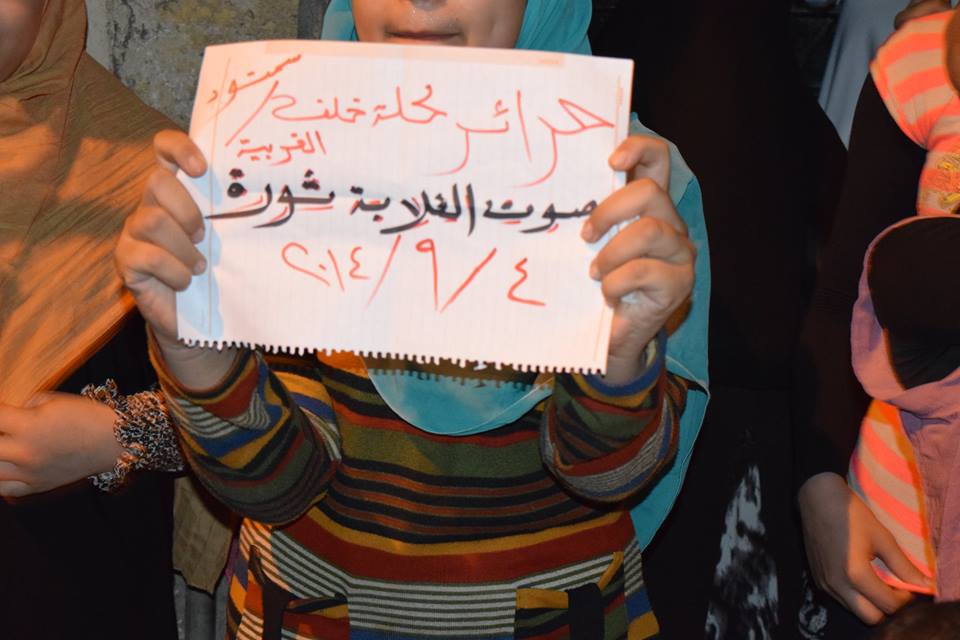 حرائر محلة خلف / سمنود
الغربية
صوت الغلابة ثورة
٤ / ٩ / ٢٠١٤